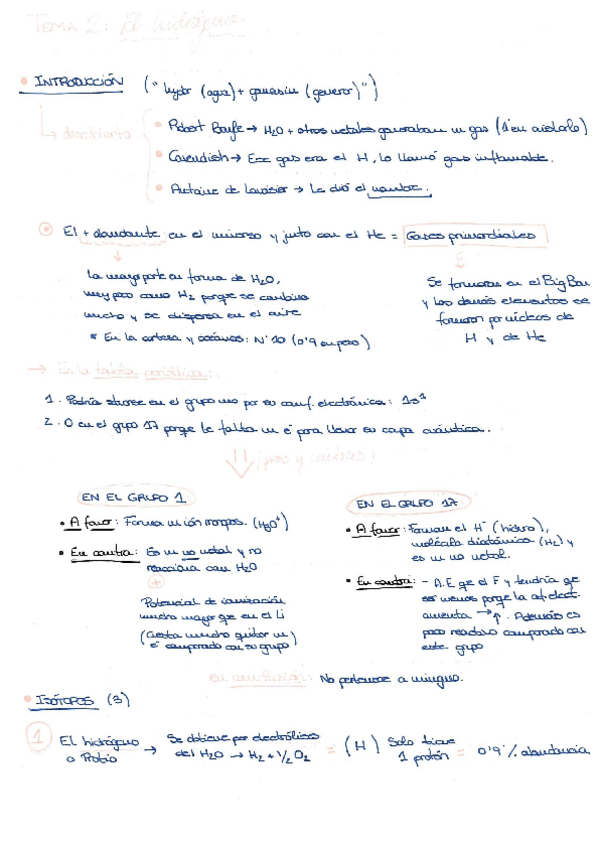 TEMA 2: El hidrógeno
• INTRODUCCIÓN ("hydr (agua) + (generar)")
↳ descubierto
• Robert Boyle → H₂O + otros metales generaban un gas (1º en aislarlo)
• Cavendish → Ese gas era el H, lo llamó gas inflamable.
• Antoine de Lavoisier → Le dió el nombre.
El + abundante en el universo y junto con el He = Gases primordiales
La mayor parte en forma de H₂O,
muy poco como H₂ porque se combina
mucho y se dispersa en el aire
* En la corteza y océanos: Nº 10 (0'9 en peso)
Se formaron en el Big Ban
y los demás elementos se
forman por núcleos de
H y de He
→ En la tabla periódica:
1. Podría situarse en el grupo uno por su conf. electrónica: 1s¹
2. O en el grupo 17 porqe le falta un e⁻ para llenar su capa cuántica.
¡pros y contras!
EN EL GRUPO 1
• A favor: Forma un ión monopos. (H₃O⁺)
• En contra: Es un no metal y no
reacciona con H₂O
+
Potencial de ionización
mucho mayor que en el Li
(Cuesta mucho quitar un
e⁻ comparado con su grupo)
EN EL GRUPO 17
• A favor: Forman el H⁻ (hidruro),
molécula diatómica (H₂) y
es un no metal.
• En contra: - A.E qe el F y tendría qe
ser menos porqe la af. elect.
aumenta →↑. Además es
poco reactivo comparado con
este grupo
en conclusión: No pertenece a ninguno.
• ISÓTOPOS (3)
1 El hidrógeno
o Protio
→ Se obtiene por electrólisis
del H₂O → H₂ + 1/2 O₂
= (H) Solo tiene
1 protón
= 0'9 % abundancia